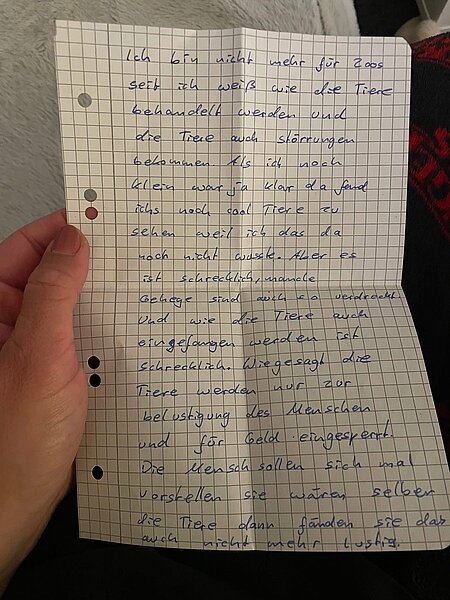 Ich bin nicht mehr für Zoos
seit ich weiß wie die Tiere
behandelt werden und
die Tiere auch störrungen
bekommen. Als ich noch
klein war ja klar da fand
ichs noch cool Tiere zu
sehen weil ich das da
noch nicht wusste. Aber es
ist schrecklich, manche
Gehege sind auch so verdreckt
Und wie die Tiere auch
eingefangen werden ist
schrecklich. Wiegesagt die
Tiere werden nur zur
belustigung des Menschen
und für Geld eingesperrt.
Die Mensch sollen sich mal
vorstellen sie wären selber
die Tiere dann fänden sie das
auch nicht mehr lustig.